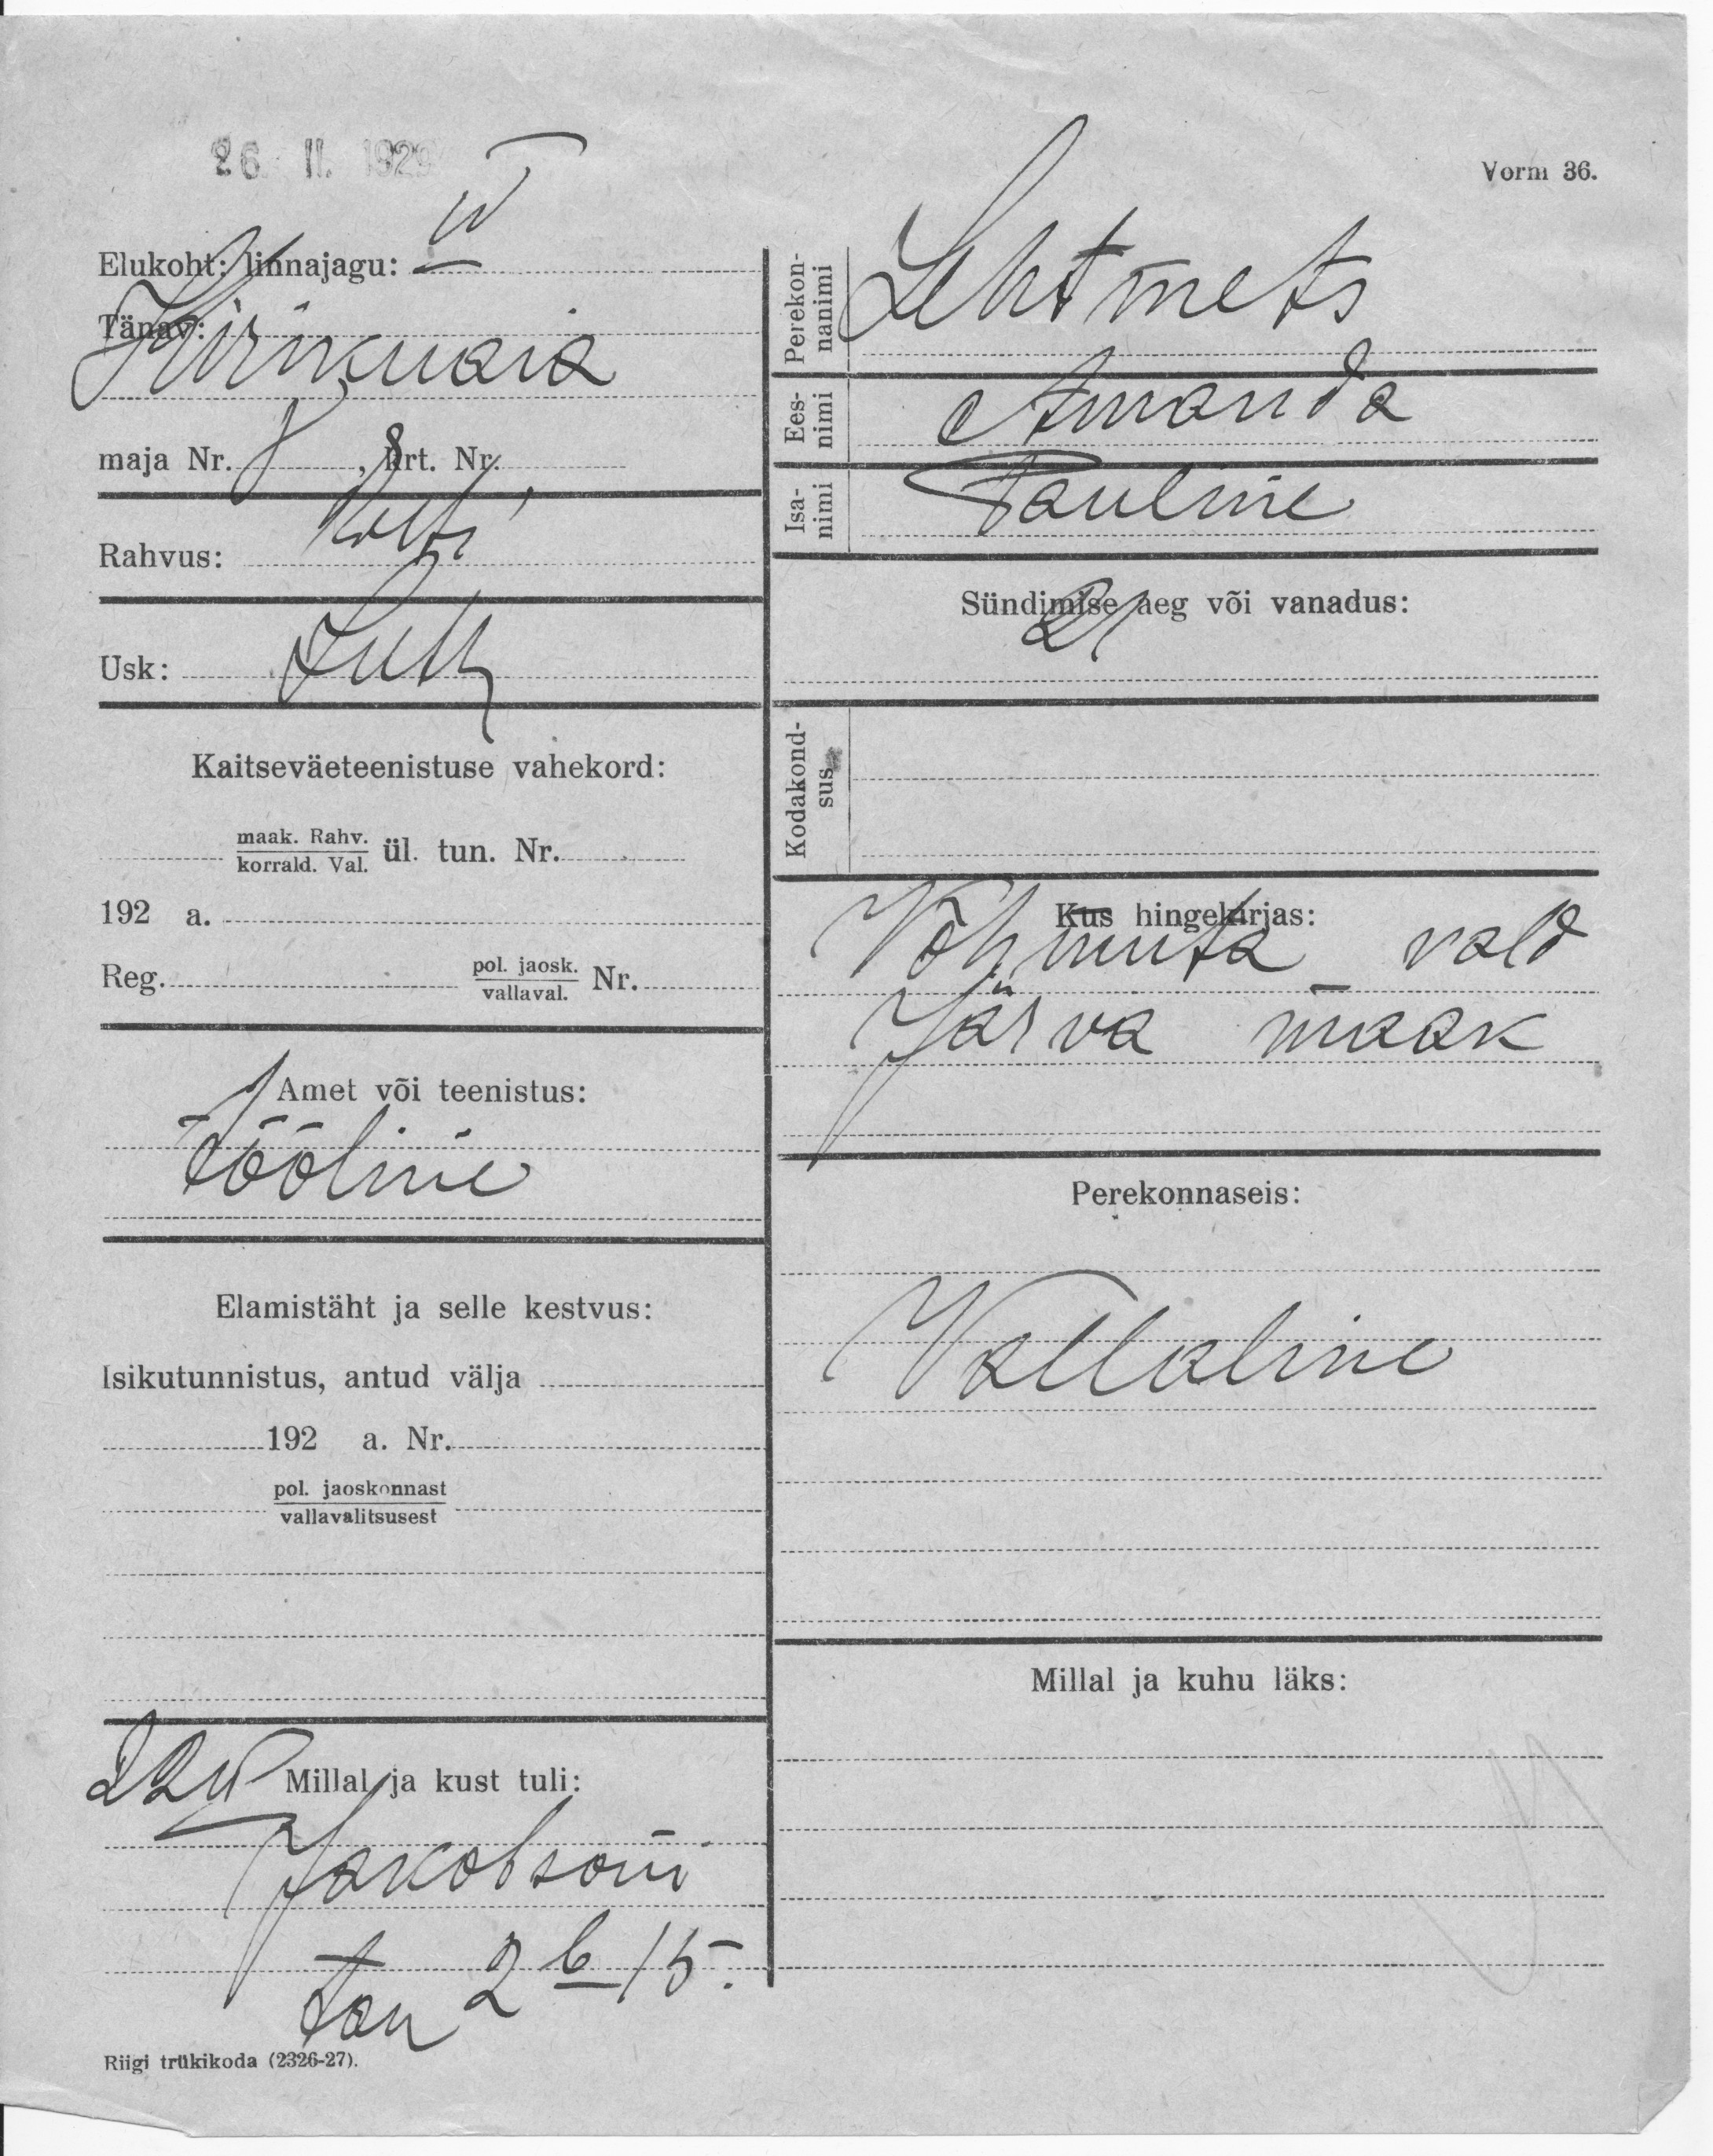 26 II. 1929
Vorm 36.
Elukoht: linnajagu: IV
Tänav:
maja Nr. , krt. Nr. 8
Rahvus:
Usk: Luth
Kaitseväeteenistuse vahekord:
maak. Rahv.
korrald. Val. ül. tun. Nr.
192 a.
Reg. pol. jaosk.
vallaval. Nr.
Amet või teenistus:
tööline
Elamistäht ja selle kestvus:
Isikutunnistus, antud välja
192 a. Nr.
pol. jaoskonnast
vallavalitsusest
Millal ja kust tuli:
Jakobsoni
tän 2b 15.
Riigi trükikoda (2326-27).
Perekon-
nanimi Lehtmets
Ees-
nimi Amanda
Isa-
nimi Pauline
Sündimise aeg või vanadus:
21
Kodakond-
sus
Kus hingekirjas:
Võhmuta vald
Järva maak
Perekonnaseis:
Vallaline
Millal ja kuhu läks: